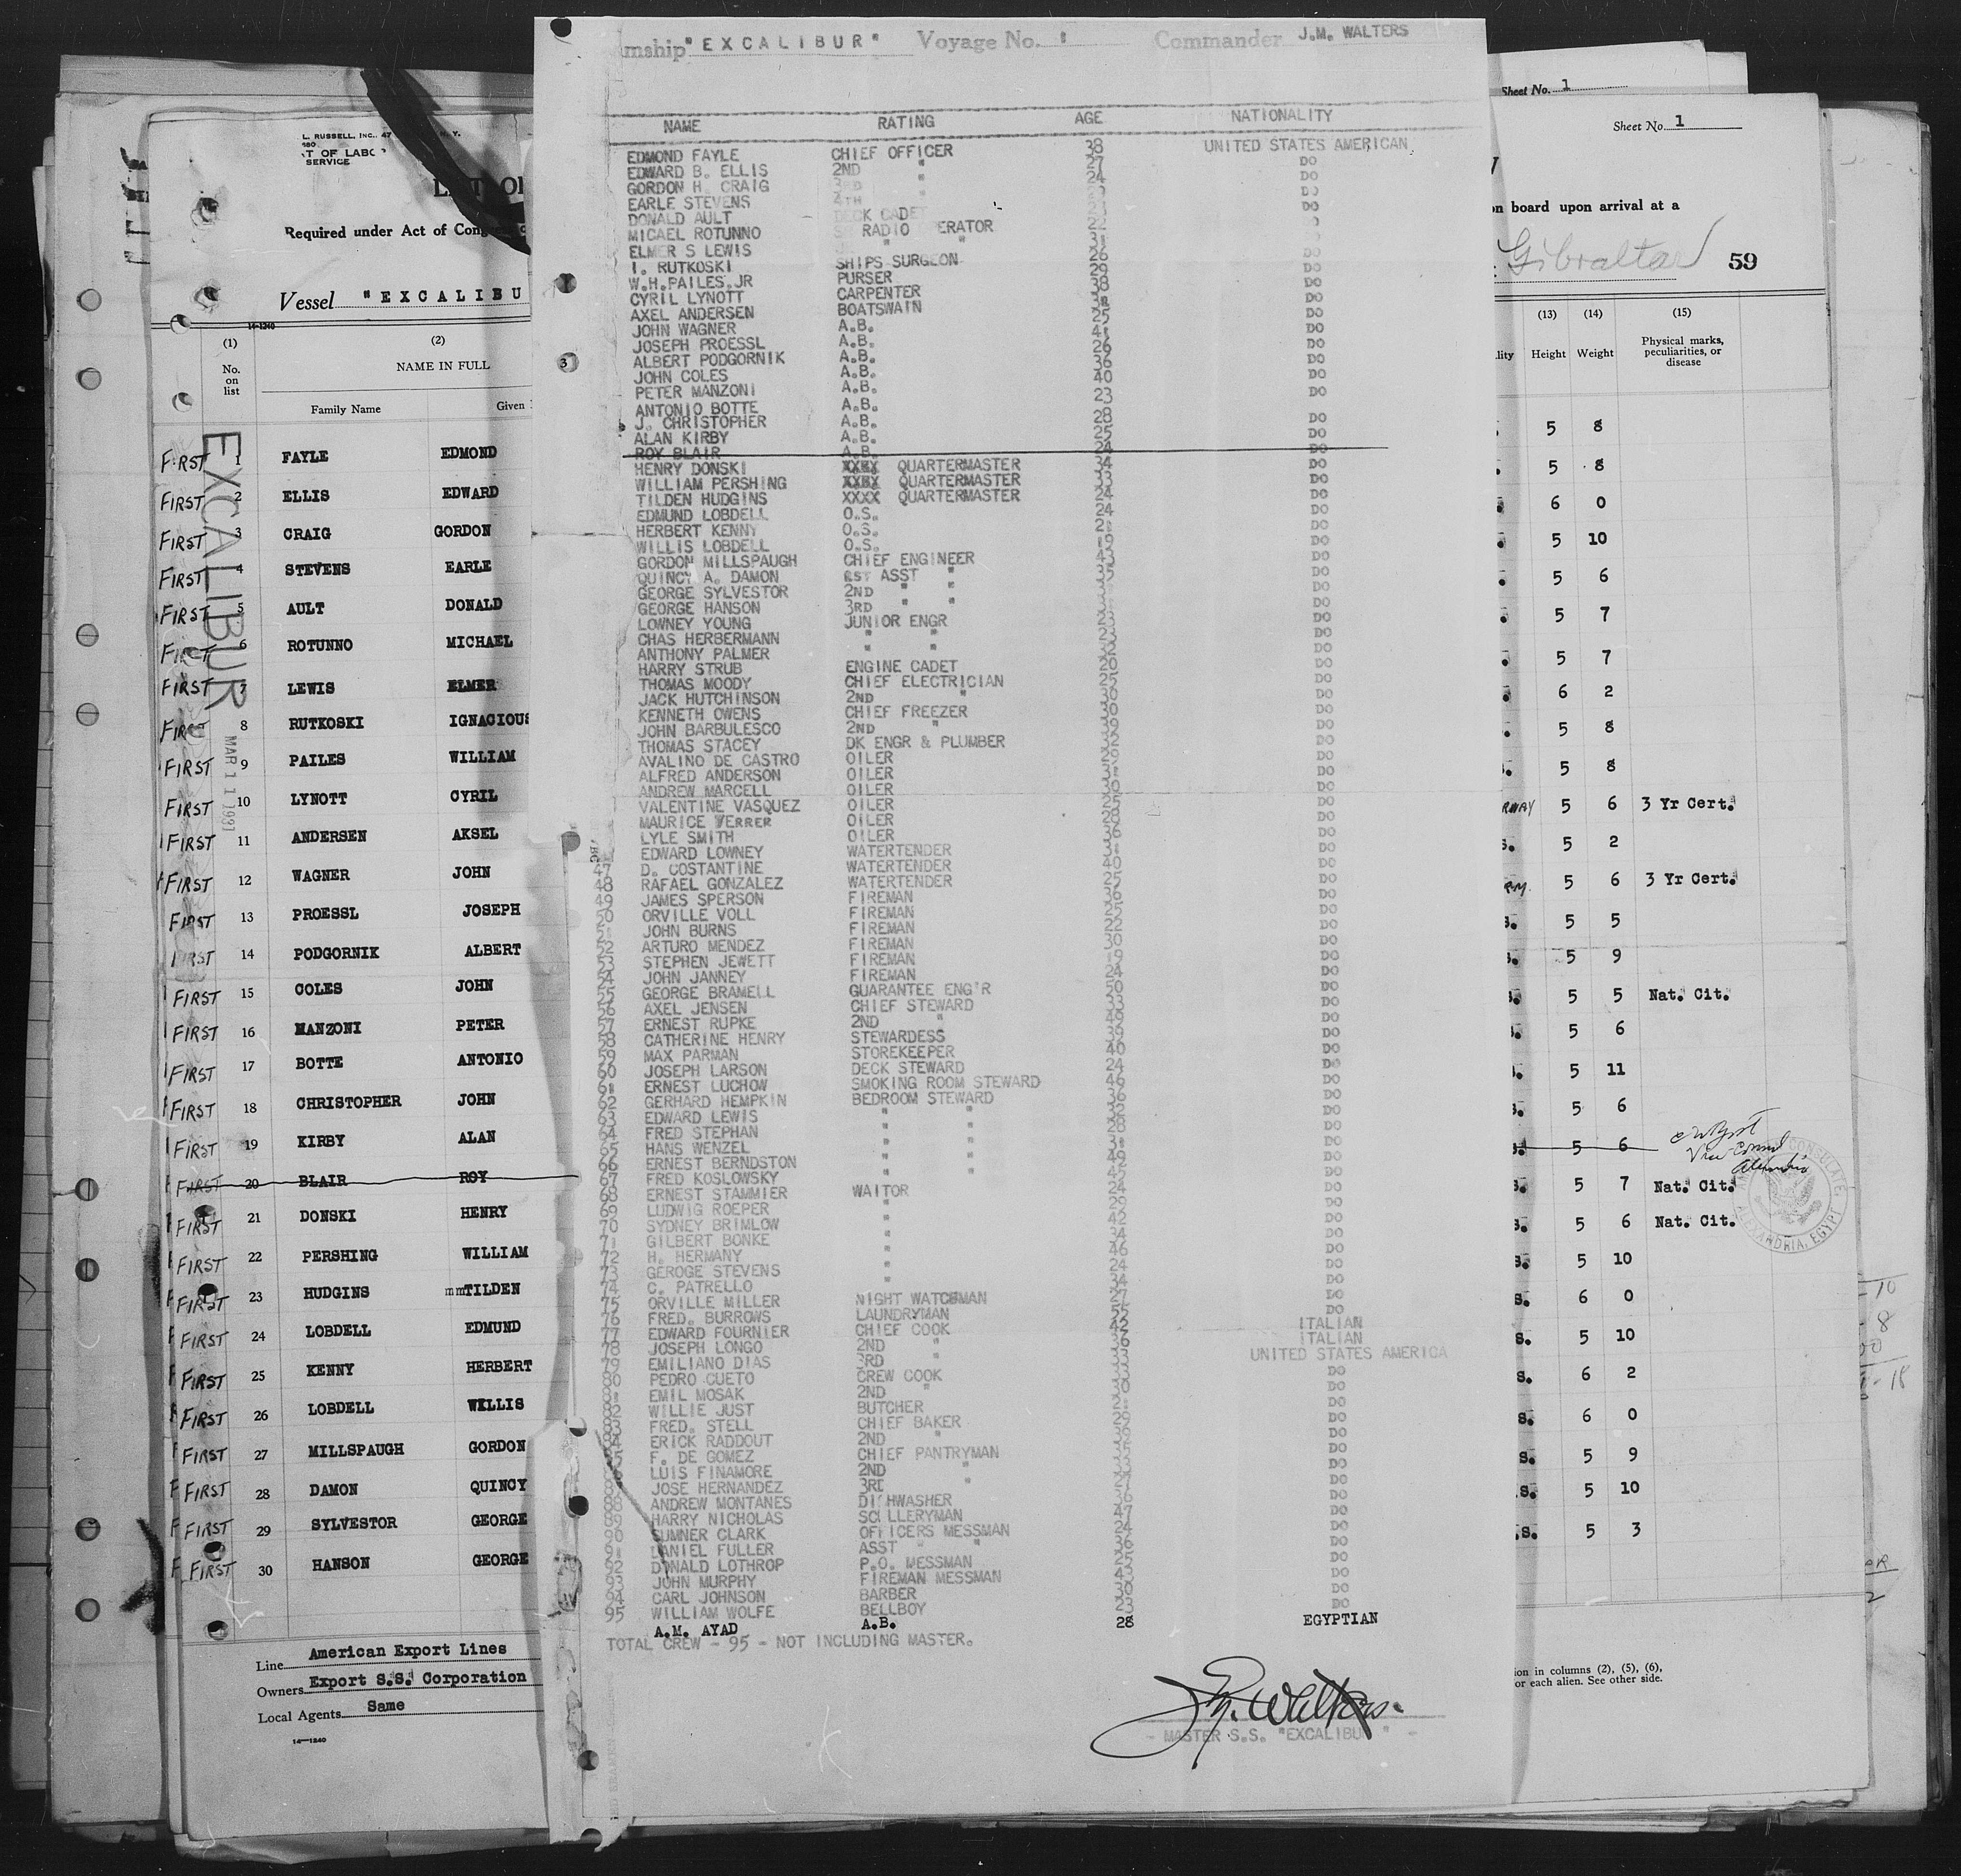 L. RUSSELL, INC., 47
T OF LABO
SERVICE
Required under Act of Cong
Vessel "EXCALIBU
14-1240
(1) (2)
No. on list NAME IN FULL
Family Name Given
EXCALIBUR
MAR 11 1931
FIRST 1 FAYLE EDMOND
FIRST 2 ELLIS EDWARD
FIRST 3 CRAIG GORDON
FIRST 4 STEVENS EARLE
FIRST 5 AULT DONALD
FIRST 6 ROTUNNO MICHAEL
FIRST 7 LEWIS ELMER
FIRST 8 RUTKOSKI IGNACIOUS
FIRST 9 PAILES WILLIAM
FIRST 10 LYNOTT CYRIL
FIRST 11 ANDERSEN AKSEL
FIRST 12 WAGNER JOHN
FIRST 13 PROESSL JOSEPH
FIRST 14 PODGORNIK ALBERT
FIRST 15 COLES JOHN
FIRST 16 MANZONI PETER
FIRST 17 BOTTE ANTONIO
FIRST 18 CHRISTOPHER JOHN
FIRST 19 KIRBY ALAN
FIRST 20 BLAIR ROY
FIRST 21 DONSKI HENRY
FIRST 22 PERSHING WILLIAM
FIRST 23 HUDGINS mmTILDEN
FIRST 24 LOBDELL EDMUND
FIRST 25 KENNY HERBERT
FIRST 26 LOBDELL WILLIS
FIRST 27 MILLSPAUGH GORDON
FIRST 28 DAMON QUINCY
FIRST 29 SYLVESTOR GEORGE
FIRST 30 HANSON GEORGE
Line American Export Lines
Owners Export S.S. Corporation
Local Agents Same
14-1240
mship "EXCALIBUR" Voyage No. 1 Commander J.M. WALTERS
NAME RATING AGE NATIONALITY
EDMOND FAYLE CHIEF OFFICER 38 UNITED STATES AMERICAN
EDWARD B. ELLIS 2ND " 27 DO
GORDON H. CRAIG 3RD " 24 DO
EARLE STEVENS 4TH " DO
DONALD AULT DECK CADET DO
MICAEL ROTUNNO RADIO OPERATOR 22
ELMER S LEWIS " " 31
I. RUTKOSKI SHIPS SURGEON 26 DO
W.H.PAILES.JR PURSER 29 DO
CYRIL LYNOTT CARPENTER 38 DO
AXEL ANDERSEN BOATSWAIN 31 DO
JOHN WAGNER A.B. 25 DO
JOSEPH PROESSL A.B. 41 DO
ALBERT PODGORNIK A.B. 26 DO
JOHN COLES A.B. 36 DO
PETER MANZONI A.B. 40 DO
ANTONIO BOTTE A.B. 23 DO
J. CHRISTOPHER A.B. 28 DO
ALAN KIRBY A.B. 25 DO
ROY BLAIR A.B. 24 DO
HENRY DONSKI XXXX QUARTERMASTER 34 DO
WILLIAM PERSHING XXXX QUARTERMASTER 33 DO
TILDEN HUDGINS XXXX QUARTERMASTER 24 DO
EDMUND LOBDELL O.S. 24 DO
HERBERT KENNY O.S. 21 DO
WILLIS LOBDELL O.S. 19 DO
GORDON MILLSPAUGH CHIEF ENGINEER 43 DO
QUINCY A. DAMON 1ST ASST " 35 DO
GEORGE SYLVESTOR 2ND " " DO
GEORGE HANSON 3RD " " DO
LOWNEY YOUNG JUNIOR ENGR 23 DO
CHAS HERBERMANN " " 23 DO
ANTHONY PALMER " " 32 DO
HARRY STRUB ENGINE CADET 20 DO
THOMAS MOODY CHIEF ELECTRICIAN 25 DO
JACK HUTCHINSON 2ND " 30 DO
KENNETH OWENS CHIEF FREEZER 30 DO
JOHN BARBULESCO 2ND " 39 DO
THOMAS STACEY DK ENGR & PLUMBER 32 DO
AVALINO DE CASTRO OILER 29 DO
ALFRED ANDERSON OILER 31 DO
ANDREW MARCELL OILER 30 DO
VALENTINE VASQUEZ OILER 25 DO
MAURICE VERRER OILER 28 DO
LYLE SMITH OILER 36 DO
EDWARD LOWNEY WATERTENDER 31 DO
47 D. COSTANTINE WATERTENDER 40 DO
48 RAFAEL GONZALEZ WATERTENDER 25 DO
49 JAMES SPERSON FIREMAN 36 DO
50 ORVILLE VOLL FIREMAN 25 DO
51 JOHN BURNS FIREMAN 22 DO
52 ARTURO MENDEZ FIREMAN 30 DO
53 STEPHEN JEWETT FIREMAN 19 DO
54 JOHN JANNEY FIREMAN 24 DO
55 GEORGE BRAMELL GUARANTEE ENG'R 50 DO
56 AXEL JENSEN CHIEF STEWARD 33 DO
57 ERNEST RUPKE 2ND " 49 DO
58 CATHERINE HENRY STEWARDESS 39 DO
59 MAX PARMAN STOREKEEPER 40 DO
60 JOSEPH LARSON DECK STEWARD 24 DO
61 ERNEST LUCHOW SMOKING ROOM STEWARD 46 DO
62 GERHARD HEMPKIN BEDROOM STEWARD 36 DO
63 EDWARD LEWIS " " 32 DO
64 FRED STEPHAN " " 28 DO
65 HANS WENZEL " " 31 DO
66 ERNEST BERNDSTON " " 49 DO
67 FRED KOSLOWSKY " " 42 DO
68 ERNEST STAMMIER WAITOR 24 DO
69 LUDWIG ROEPER " 29 DO
70 SYDNEY BRIMLOW " 42 DO
71 GILBERT BONKE " 34 DO
72 H. HERMANY " 46 DO
73 GEROGE STEVENS " 24 DO
74 C. PATRELLO " 34 DO
75 ORVILLE MILLER NIGHT WATCHMAN 27 DO
76 FRED. BURROWS LAUNDRYMAN 55 DO
77 EDWARD FOURNIER CHIEF COOK 42 ITALIAN
78 JOSEPH LONGO 2ND " 36 ITALIAN
79 EMILIANO DIAS 3RD " 33 UNITED STATES AMERICA
80 PEDRO CUETO CREW COOK 33 DO
81 EMIL MOSAK 2ND " 30 DO
82 WILLIE JUST BUTCHER 21 DO
83 FRED. STELL CHIEF BAKER 29 DO
84 ERICK RADDOUT 2ND " 36 DO
85 F. DE GOMEZ CHIEF PANTRYMAN 35 DO
86 LUIS FINAMORE 2ND " 33 DO
JOSE HERNANDEZ 3RD " DO
88 ANDREW MONTANES DISHWASHER 36 DO
89 HARRY NICHOLAS SCULLERYMAN 47 DO
90 SUMNER CLARK OFFICERS MESSMAN 24 DO
91 DANIEL FULLER ASST " " 36 DO
92 DONALD LOTHROP P.O. MESSMAN 25 DO
93 JOHN MURPHY FIREMAN MESSMAN 43 DO
94 CARL JOHNSON BARBER 30 DO
95 WILLIAM WOLFE BELLBOY 23 DO
A.M. AYAD A.B. 28 EGYPTIAN
TOTAL CREW - 95 - NOT INCLUDING MASTER.
J.M. Walters.
- MASTER S.S. "EXCALIBUR" -
Sheet No. 1
Sheet No. 1
on board upon arrival at a
Gibraltar 59
(13) (14) (15)
lity Height Weight Physical marks, peculiarities, or disease
5 8
5 8
6 0
5 10
5 6
5 7
5 7
6 2
5 8
5 8
RWAY 5 6 3 Yr Cert.
S. 5 2
RM. 5 6 3 Yr Cert.
S. 5 5
S. 5 9
S. 5 5 Nat. Cit.
S. 5 6
S. 5 11
S. 5 6
S. 5 6
Vice Consul
Alexandria
CONSULATE, ALEXANDRIA, EGYPT
S. 5 7 Nat. Cit.
S. 5 6 Nat. Cit.
S. 5 10
S. 6 0
S. 5 10
S. 6 2
S. 6 0
S. 5 9
S. 5 10
S. 5 3
ion in columns (2), (5), (6),
or each alien. See other side.